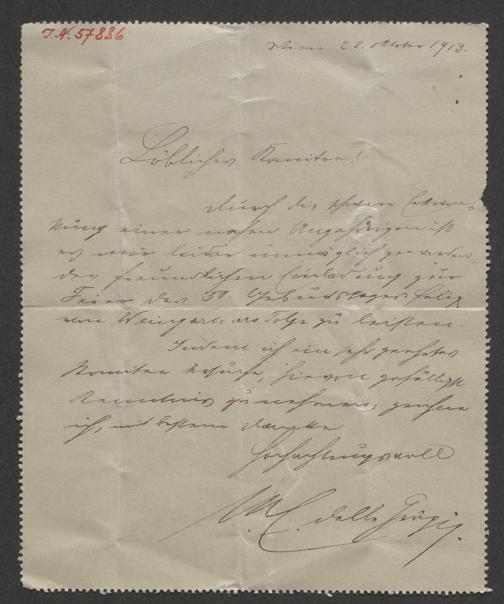 I.N. 57886
Wien 22. Oktober 1913.
Löbliches Komitee!
Durch die schwere Erkran-
kung einer nahen Angehörigen ist
es mir leider unmöglich geworden,
der freundlichen Einladung zur
Feier des 50. Geburtstages Felix
von Weingartners Folge zu leisten.
Indem ich ein sehr geehrtes
Komitee ersuche, hievon gefälligst
Kenntnis zu nehmen, zeichne
ich, mit bestem Danke
Hochachtungsvoll
delle Grazie.